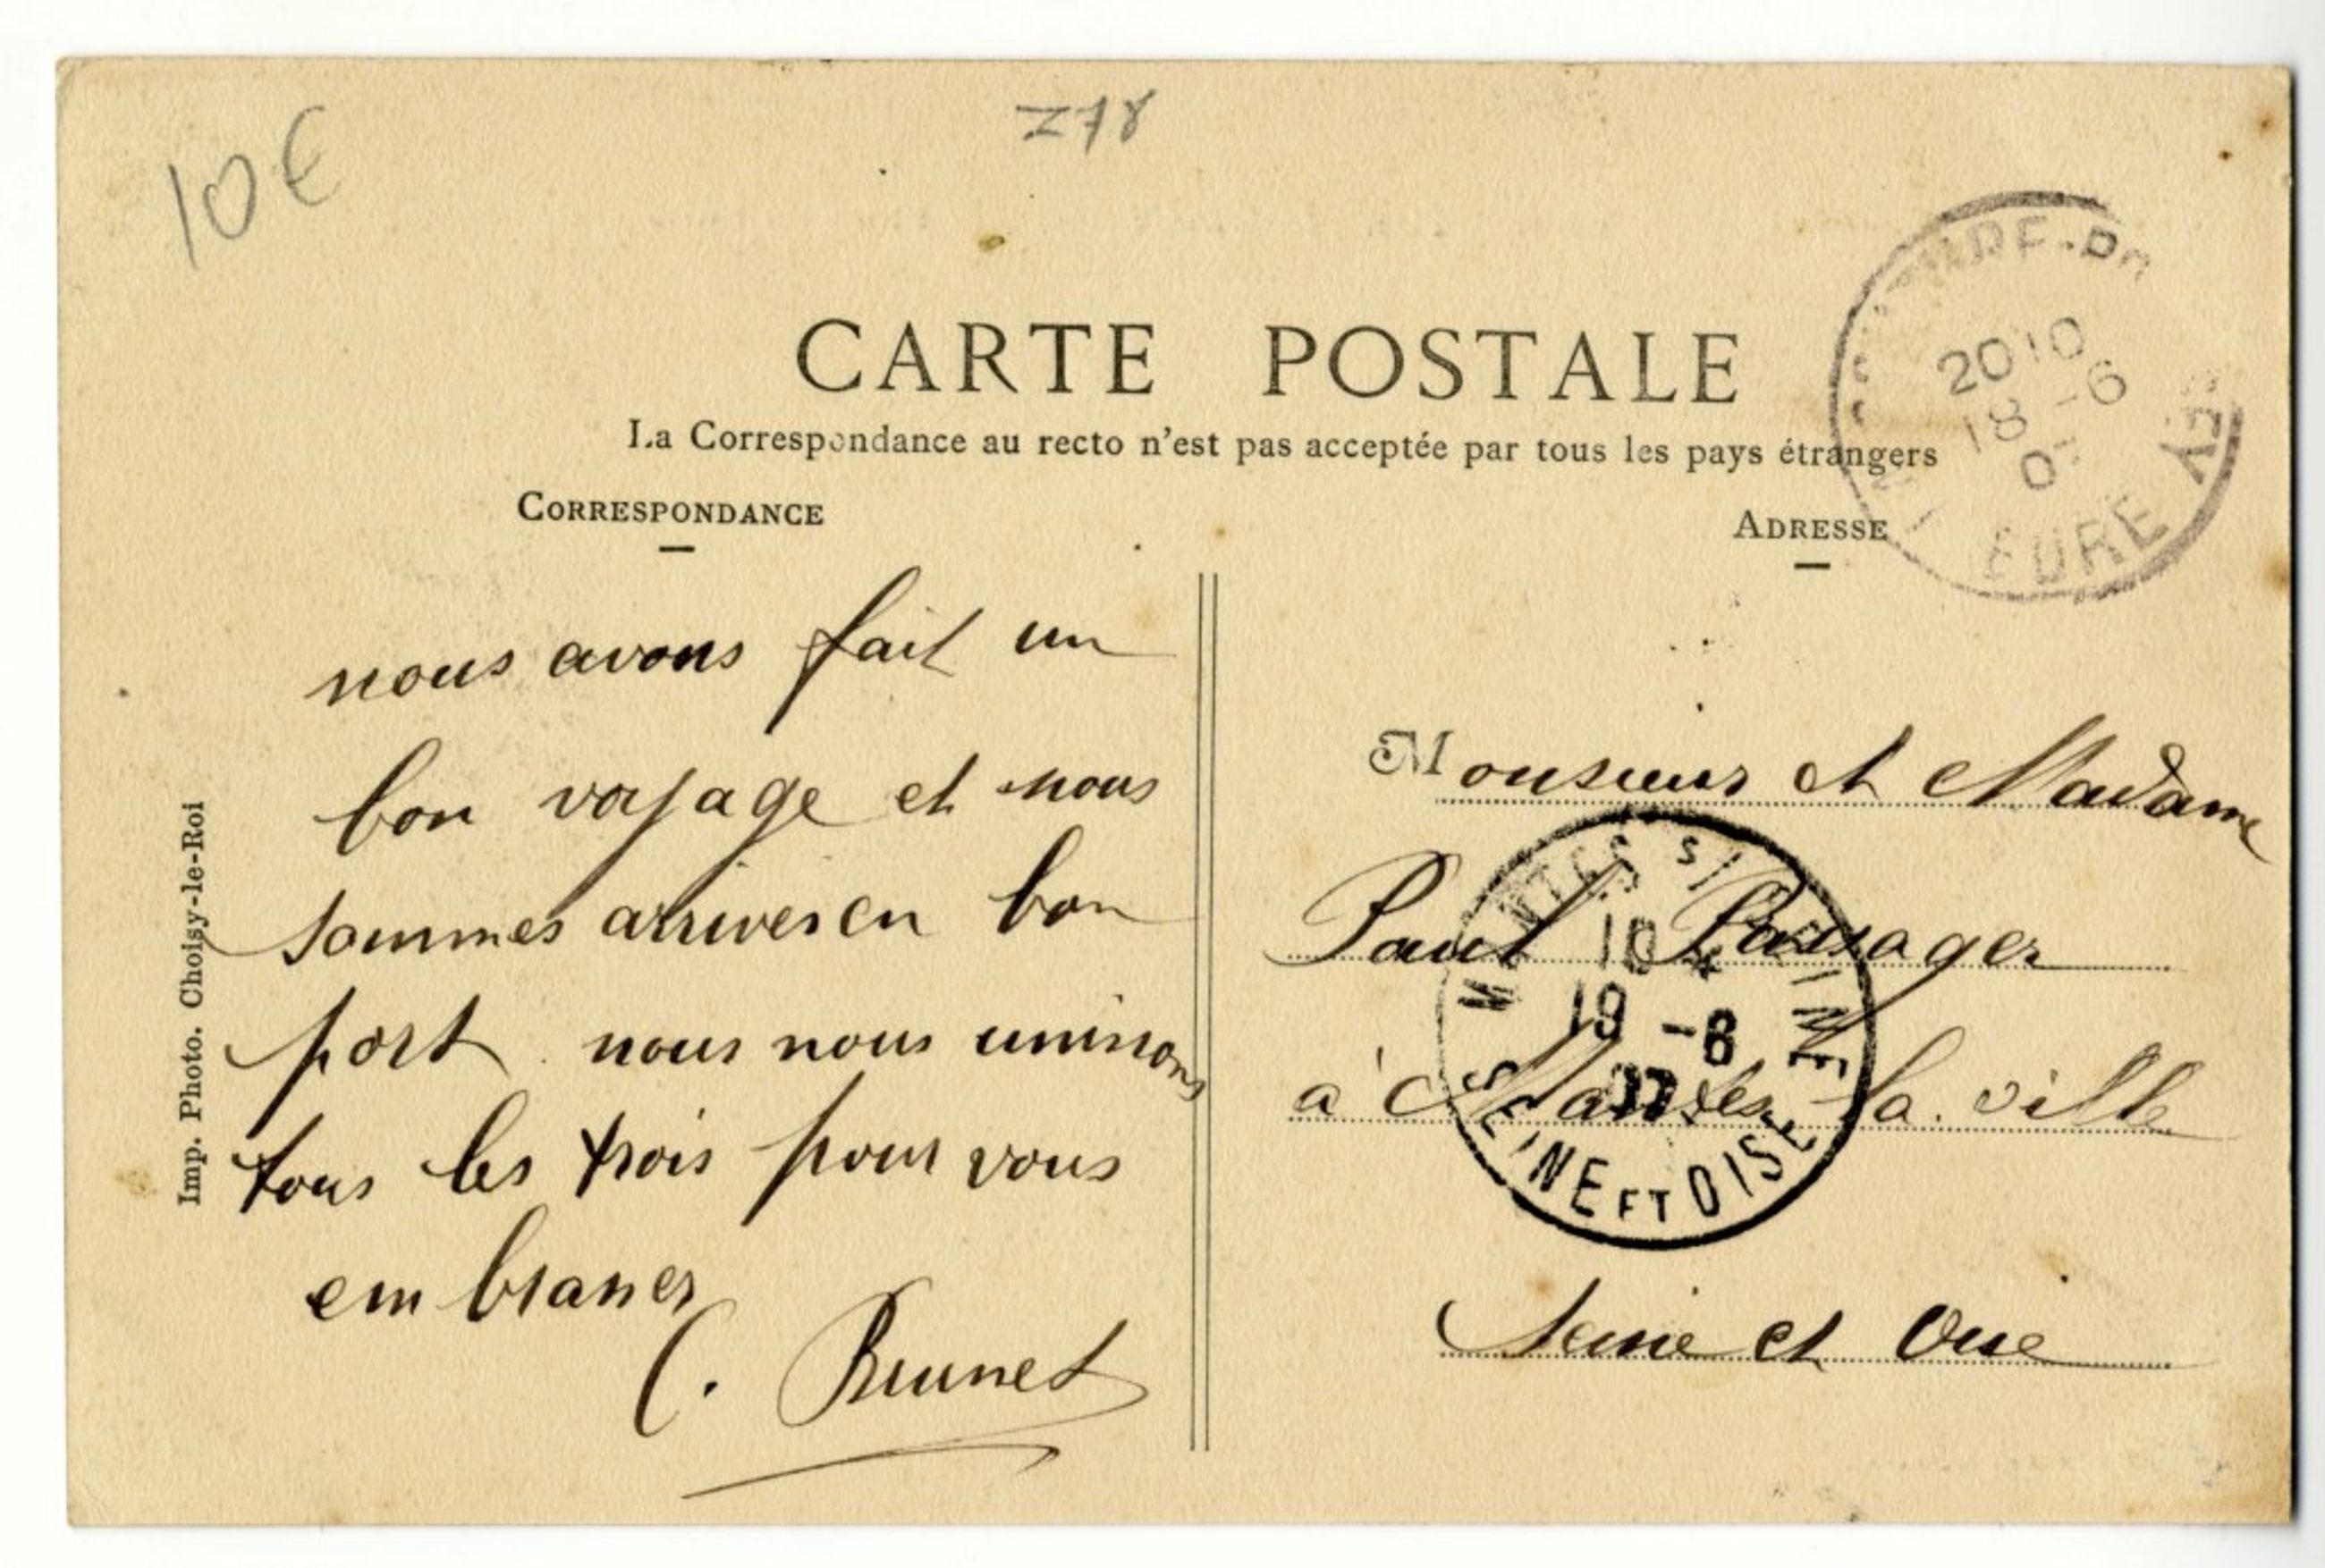 10€
Z78
CARTE POSTALE
La Correspondance au recto n'est pas acceptée par tous les pays étrangers
CORRESPONDANCE
ADRESSE
20 10
18 -6
EURE
nous avons fait un
bon voyage et nous
sommes arrives en bon
port nous nous unissons
tous les trois pour vous
embrasser
C. Brunet
Imp. Photo. Choisy-le-Roi
Monsieur et Madame
Paul Passager
à Mantes la ville
Seine et Oise
MANTES S/ SEINE
10
19 -6
07
SEINE ET OISE